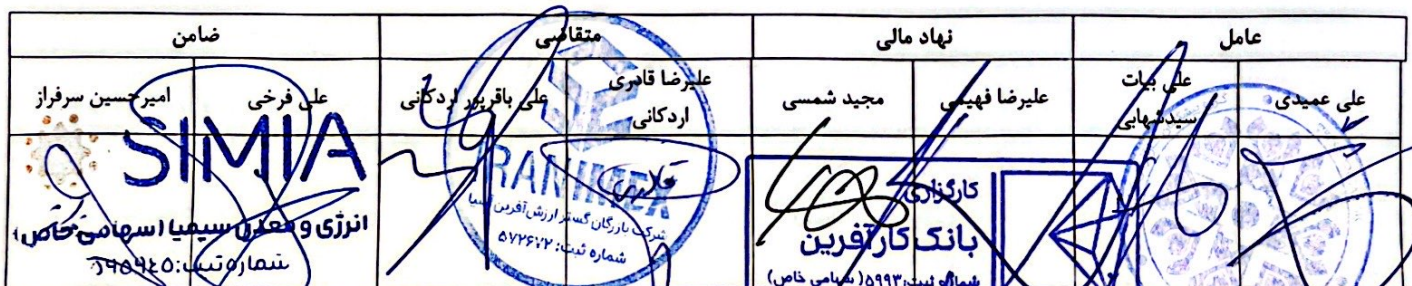 عامل نهاد مالی متقاضی ضامن
علی عمیدی
علی بیات سیدشهابی
علیرضا فهیمی
مجید شمسی
علیرضا قادری اردکانی
علی باقرپور اردکانی
علی فرخی
امیرحسین سرفراز
کارگزاری
بانک کارآفرین
شماره ثبت: ۵۹۹۳ (سهامی خاص)
RANIMEX
شرکت بازرگان گستر ارزش آفرین
شماره ثبت: ۵۷۲۶۷۲
SIMIA
انرژی و معدن سیمیا (سهامی خاص)
شماره ثبت: